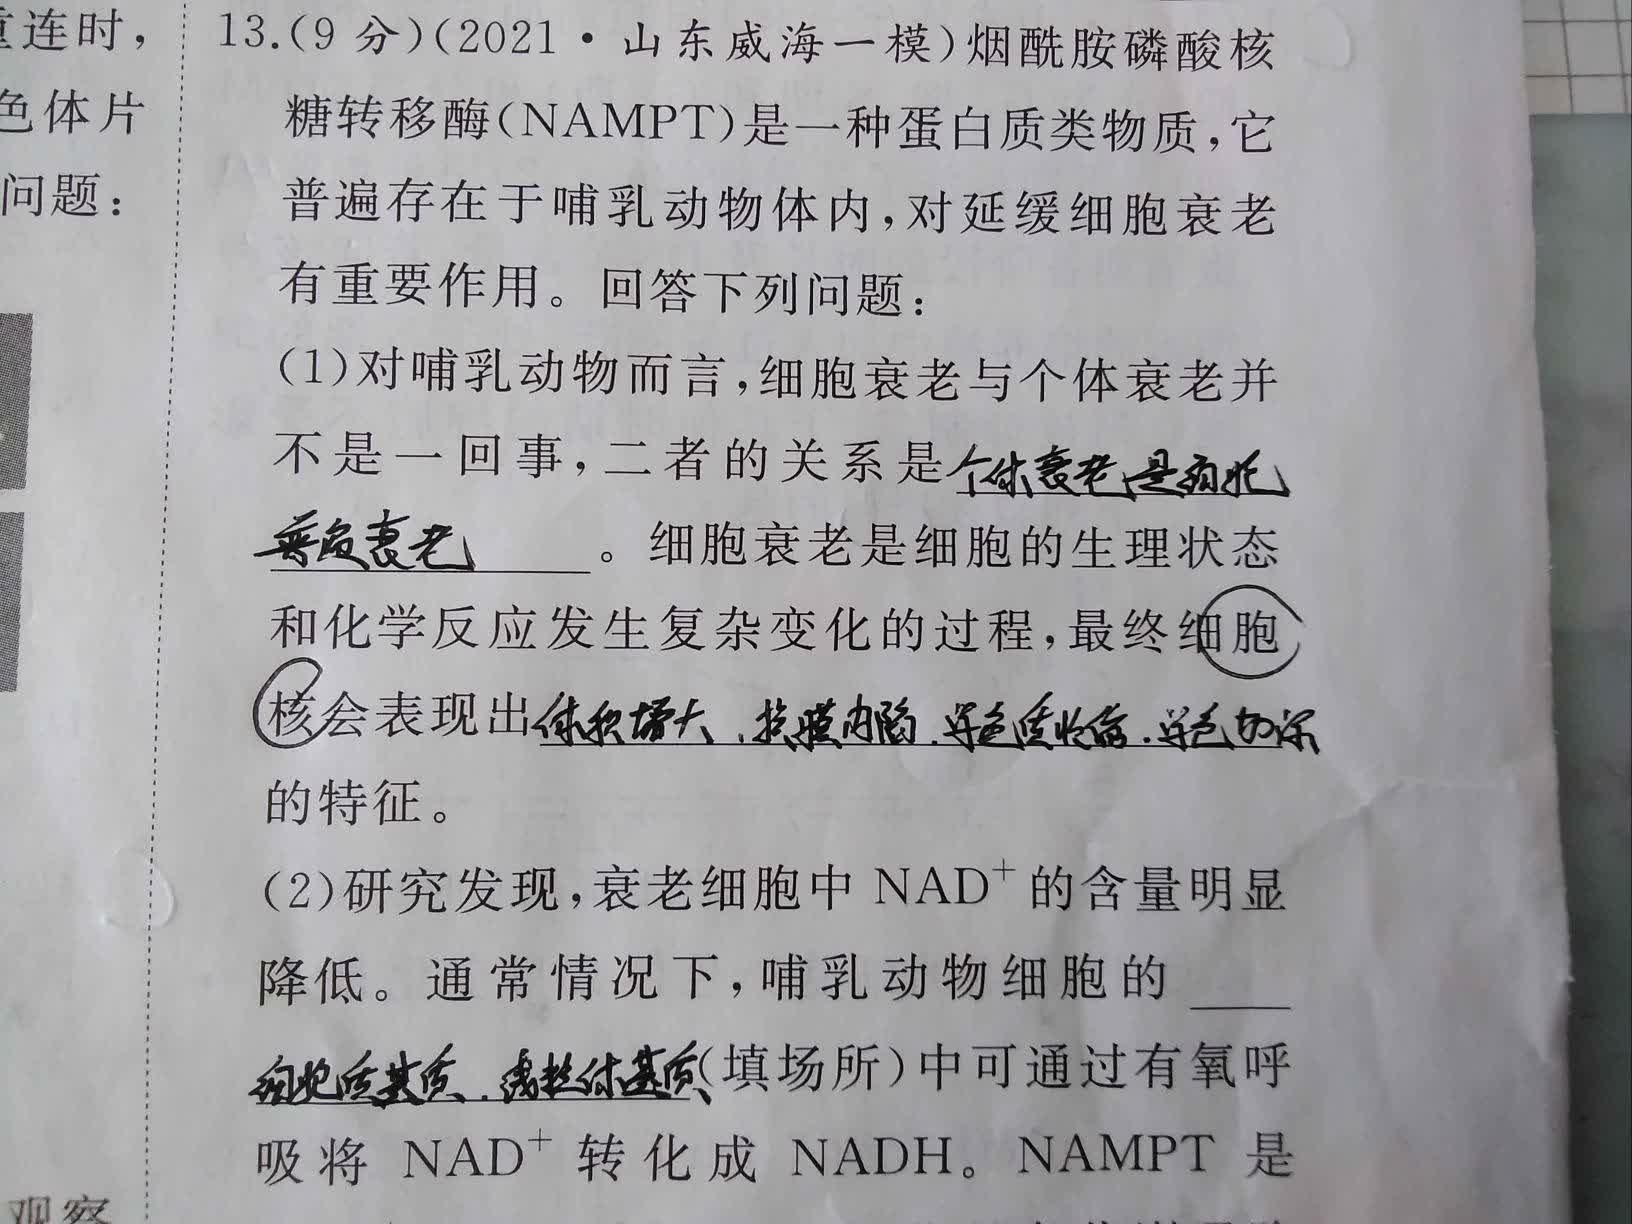 重连时,
色体片
问题:
观察
13.(9分)(2021·山东威海一模)烟酰胺磷酸核
糖转移酶(NAMPT)是一种蛋白质类物质,它
普遍存在于哺乳动物体内,对延缓细胞衰老
有重要作用。回答下列问题:
(1)对哺乳动物而言,细胞衰老与个体衰老并
不是一回事,二者的关系是个体衰老是细胞
普遍衰老。细胞衰老是细胞的生理状态
和化学反应发生复杂变化的过程,最终细胞
核会表现出体积增大、核膜内陷、染色质收缩、染色加深
的特征。
(2)研究发现,衰老细胞中NAD⁺的含量明显
降低。通常情况下,哺乳动物细胞的
细胞质基质、线粒体基质(填场所)中可通过有氧呼
吸将NAD⁺转化成NADH。NAMPT是